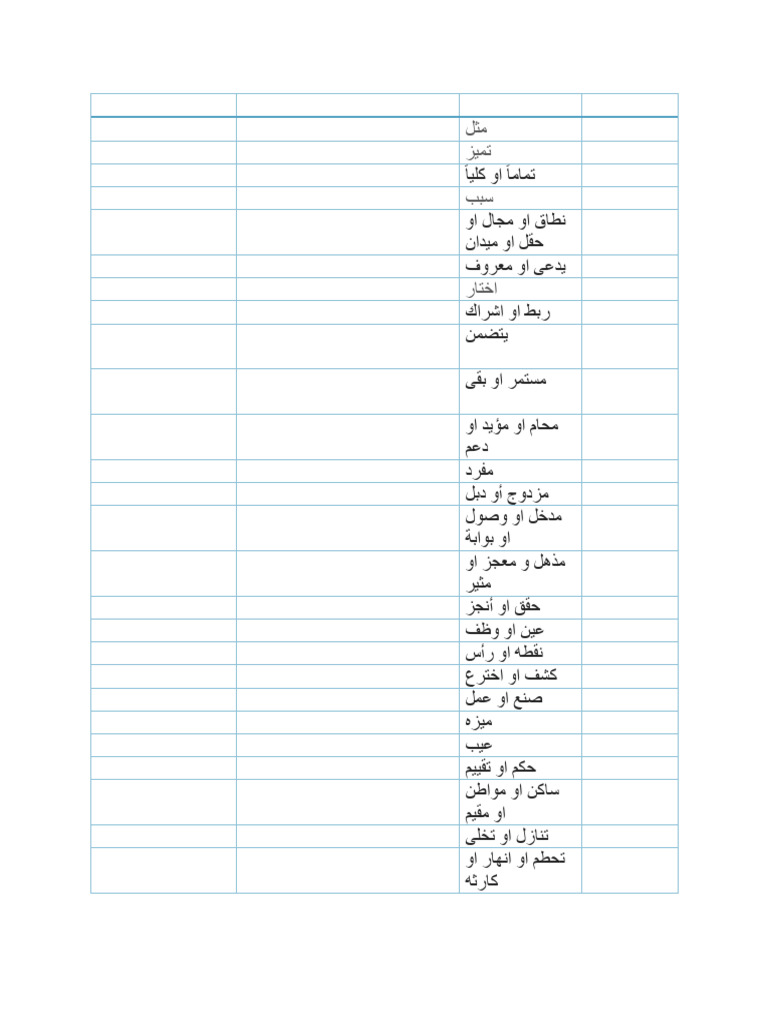 مثل
تميز
تماماً او كلياً
سبب
نطاق او مجال او
حقل او ميدان
يدعى او معروف
اختار
ربط او اشراك
يتضمن
مستمر او بقى
محام او مؤيد او
دعم
مفرد
مزدوج أو دبل
مدخل او وصول
او بوابة
مذهل و معجز او
مثير
حقق او أنجز
عين او وظف
نقطه او رأس
كشف او اخترع
صنع او عمل
ميزه
عيب
حكم او تقييم
ساكن او مواطن
او مقيم
تنازل او تخلى
تحطم او انهار او
كارثه